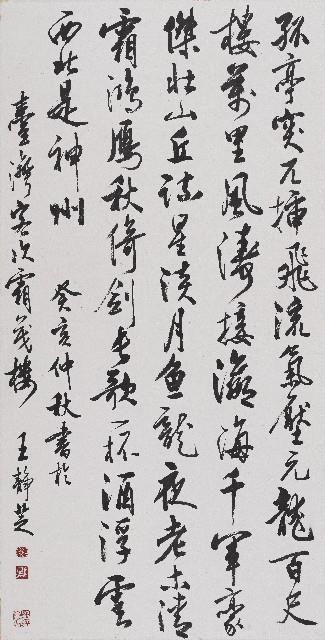 孤亭突兀插飛流氣壓元龍百尺
樓萬里風濤接瀛海千年豪
傑壯山丘疏星淡月魚龍夜老木清
霜鴻雁秋倚劍長歌一杯酒浮雲
西北是神州 癸亥仲秋書於
臺灣客次霜茂樓 王靜芝